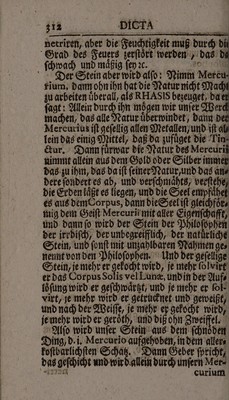 312 DICTA
netriren, aber die Feuchtigkeit muß durch di
Grad des Feuers zerstört werden, das da
schwach und mäßig sey ꝛc.
Der Stein aber wird also: Nimm Mercu-
rium. dann ohn ihn hat die Natur nicht Macht
zu arbeiten überall, als RHASIS bezeuget, da er
sagt: Allein durch ihn mögen wir unser Werck
machen, das alle Natur überwindet, dann der
Mercurius ist gesellig allen Metallen, und ist al-
lein das einig Mittel, daß da zufüget die Tin-
ctur. Dann fürwar die Natur des Mercurii
nimmt allein aus dem Gold oder Silber immer
das zu ihm, das da ist seiner Natur, und das an-
dere sondert es ab, und verschmähts, verstehe,
die Erden läßt es liegen, und die Seel empfähet
es aus dem Corpus, dann die Seel ist gleichför-
mig dem Geist Mercurii mit aller Eigenschafft,
und dann so wird der Stein der Philosophen
der irrdisch, der unbegreifflich, der natürliche
Stein, und sonst mit unzahlbaren Nahmen ge-
nennt von den Philosophen. Und der gesellige
Stein, je mehr er gekocht wird, je mehr solvirt
er das Corpus Solis vel Lunæ, und in der Auf-
lösung wird er geschwärtzt, und je mehr er sol-
virt, je mehr wird er getrucknet und geweißt,
und nach der Weisse, je mehr er gekocht wird,
je mehr wird er geröth, und diß ohn Zweiffel.
Also wird unser Stein aus dem schnöden
Ding, d. i. Mercurio aufgehoben, in dem aller-
kostbarlichsten Schatz. Dann Geber spricht,
das geschicht und wird allein durch unsern Mer-
curium